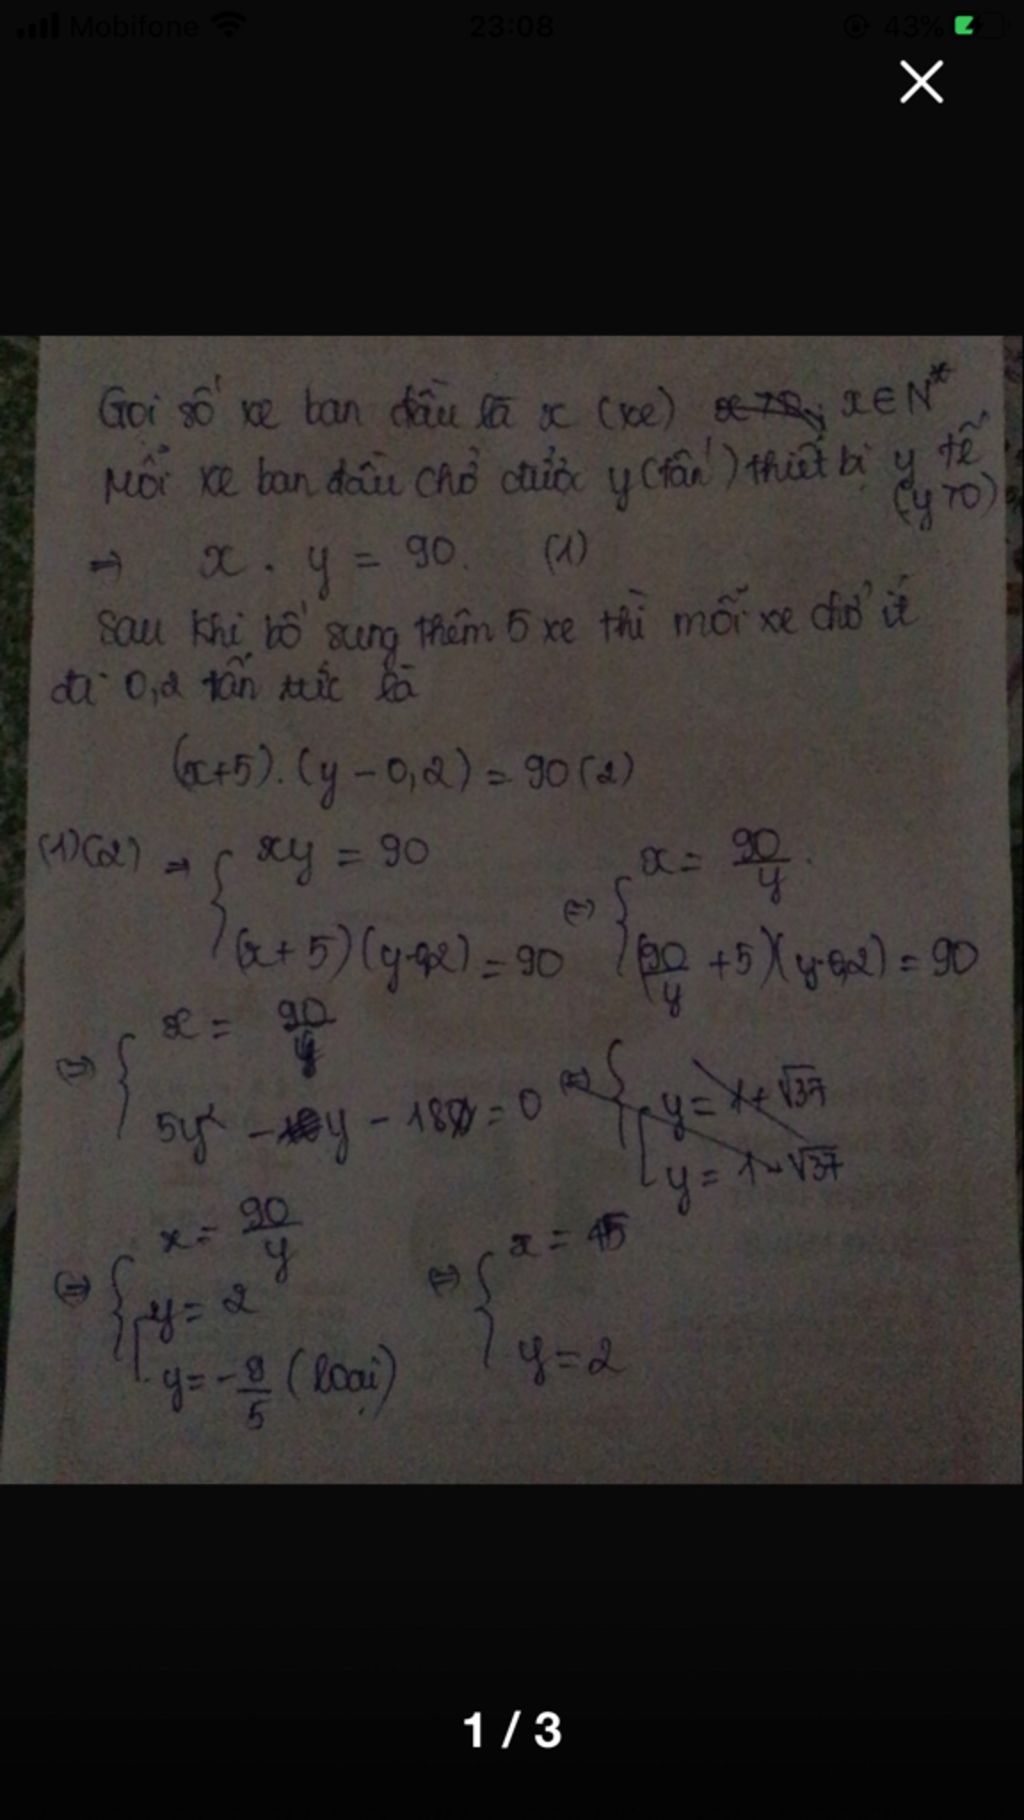 Mobifone 23:08 43%
Gọi số xe ban đầu là x (xe) x ∈ N*
Mỗi xe ban đầu chở được y (tấn) thiết bị y tế
(y > 0)
⇒ x . y = 90. (1)
Sau khi bổ sung thêm 5 xe thì mỗi xe chở ít
đi 0,2 tấn tức là
(x+5).(y-0,2) = 90 (2)
(1)(2) ⇒ { xy = 90
(x+5)(y-0,2) = 90
⇔ { x = 90/y
(90/y + 5)(y-0,2) = 90
⇔ { x = 90/y
5y² - y - 18 = 0
⇔ { y = 1 + √37
y = 1 - √37
⇔ { x = 90/y
y = 2
y = -9/5 (loại)
⇔ { x = 45
y = 2
1 / 3